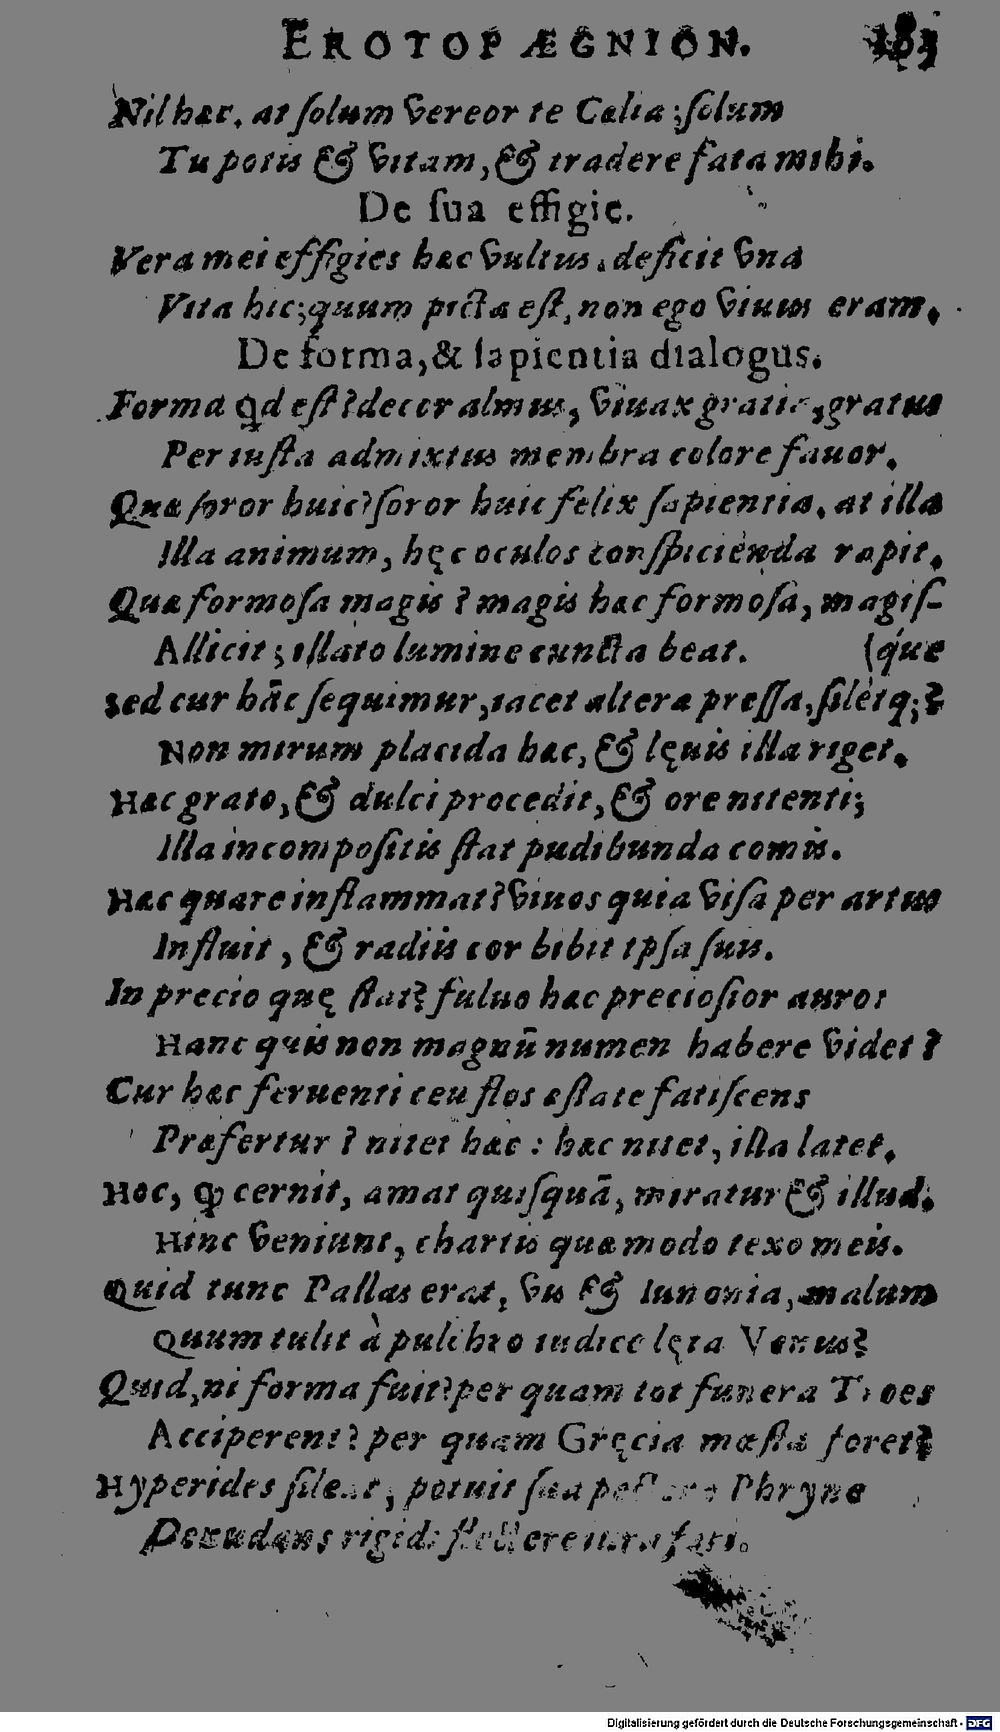 EROTOPÆGNION. 183
Nil hæc. at ſolum vereor te Cælia; ſolum
Tu potis & vitam, & tradere fata mihi.
De ſua effigie.
Vera mei effigies hæc vultus. deficit vna
Vita hic; quum picta eſt, non ego viuus eram.
De forma, & ſapientia dialogus.
Forma qd eſt? decor almus, viuax gratia, gratus
Per iuſta admixtus membra colore fauor.
Quæ ſoror huic? ſoror huic felix ſapientia. at illa
Illa animum, hęc oculos conſpicienda rapit.
Quæ formoſa magis? magis hæc formoſa, magiſ-
Allicit; illato lumine cuncta beat. (que
sed cur hāc ſequimur, iacet altera preſſa, ſiletq;?
Non mirum placida hæc, & lęuis illa riget.
Hæc grato, & dulci procedit, & ore nitenti;
Illa incompoſitis ſtat pudibunda comis.
Hæc quare inflammat? viuos quia viſa per artus
Influit, & radiis cor bibit ipſa ſuis.
In precio quę ſtat? fuluo hæc precioſior auro:
Hanc quis non magnū numen habere videt?
Cur hæc feruenti ceu flos æſtate fatiſcens
Præfertur? nitet hæc: hæc nitet, illa latet.
Hoc, ꝙ cernit, amat quiſquā, miratur & illud.
Hinc veniunt, chartis quæ modo texo meis.
Quid tunc Pallas erat, vis & Iunonia, malum
Quum tulit à pulchro iudice lęta Venus?
Quid, ni forma fuit? per quam tot funera Troes
Acciperent? per quam Gręcia mæſta foret?
Hyperides ſileat, potuit ſua pectora Phryne
Denudans rigidi flectere iura fari.